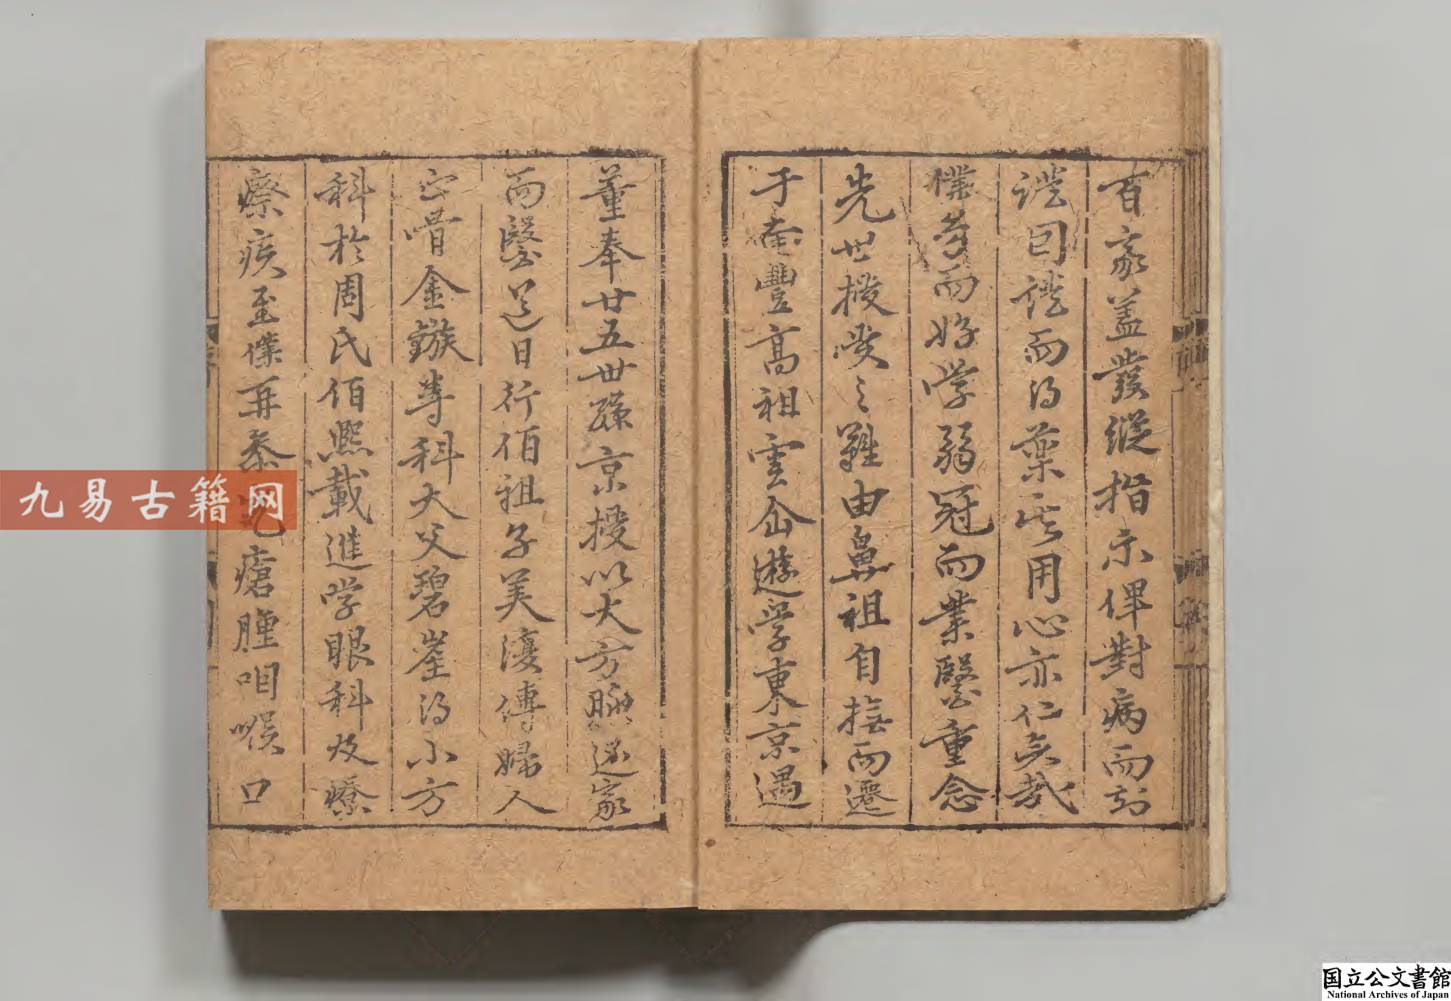 百家蓋發縱指示俾對病而知
證因證而得藥其用心亦仁矣哉
僕幼而好學弱冠而業醫重念
先世授受之難由鼻祖自撫而遷
于南豐高祖雲仙遊學東京遇
董奉廿五世孫京授以大方脈還家
而醫道日行伯祖子美復傳婦人
正骨金鏃等科大父碧崖得小方
科於周氏伯熙載進學眼科及療
瘵疾至僕再參究瘡腫咽喉口
九易古籍网
国立公文書館
National Archives of Japan